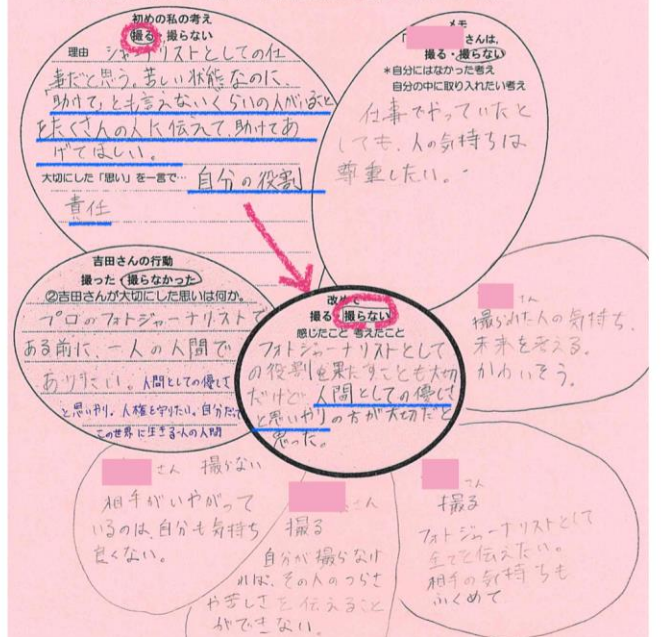 初めの私の考え
撮る・撮らない
理由 ジャーナリストとしての仕
事だと思う。苦しい状態なのに、
「助けて」とも言えないくらいの人がいること
をたくさんの人に伝えて、助けてあ
げてほしい。
大切にした「思い」を一言で… 自分の役割
責任
メモ
「 さんは、
撮る・撮らない
*自分にはなかった考え
自分の中に取り入れたい考え
仕事でやっていたと
しても、人の気持ちは
尊重したい。
吉田さんの行動
撮った・撮らなかった
②吉田さんが大切にした思いは何か。
プロのフォトジャーナリストで
ある前に、一人の人間で
ありたい。人間としての優しさ
と思いやり。人権を守りたい。自分だって
この世界に生きる一人の人間
改めて
撮る・撮らない
感じたこと 考えたこと
フォトジャーナリストとして
の役割を果たすことも大切
だけど、人間としての優しさ
と思いやりの方が大切だと
思った。
さん
撮られた人の気持ち、
未来を考える。
かわいそう。
さん 撮らない
相手がいやがって
いるのは、自分も気持ち
良くない。
さん
撮る
自分が撮らなけ
れば、その人のつらさ
や苦しさを伝えること
ができない。
さん
撮る
フォトジャーナリストとして
全てを伝えたい。
相手の気持ちも
ふくめて